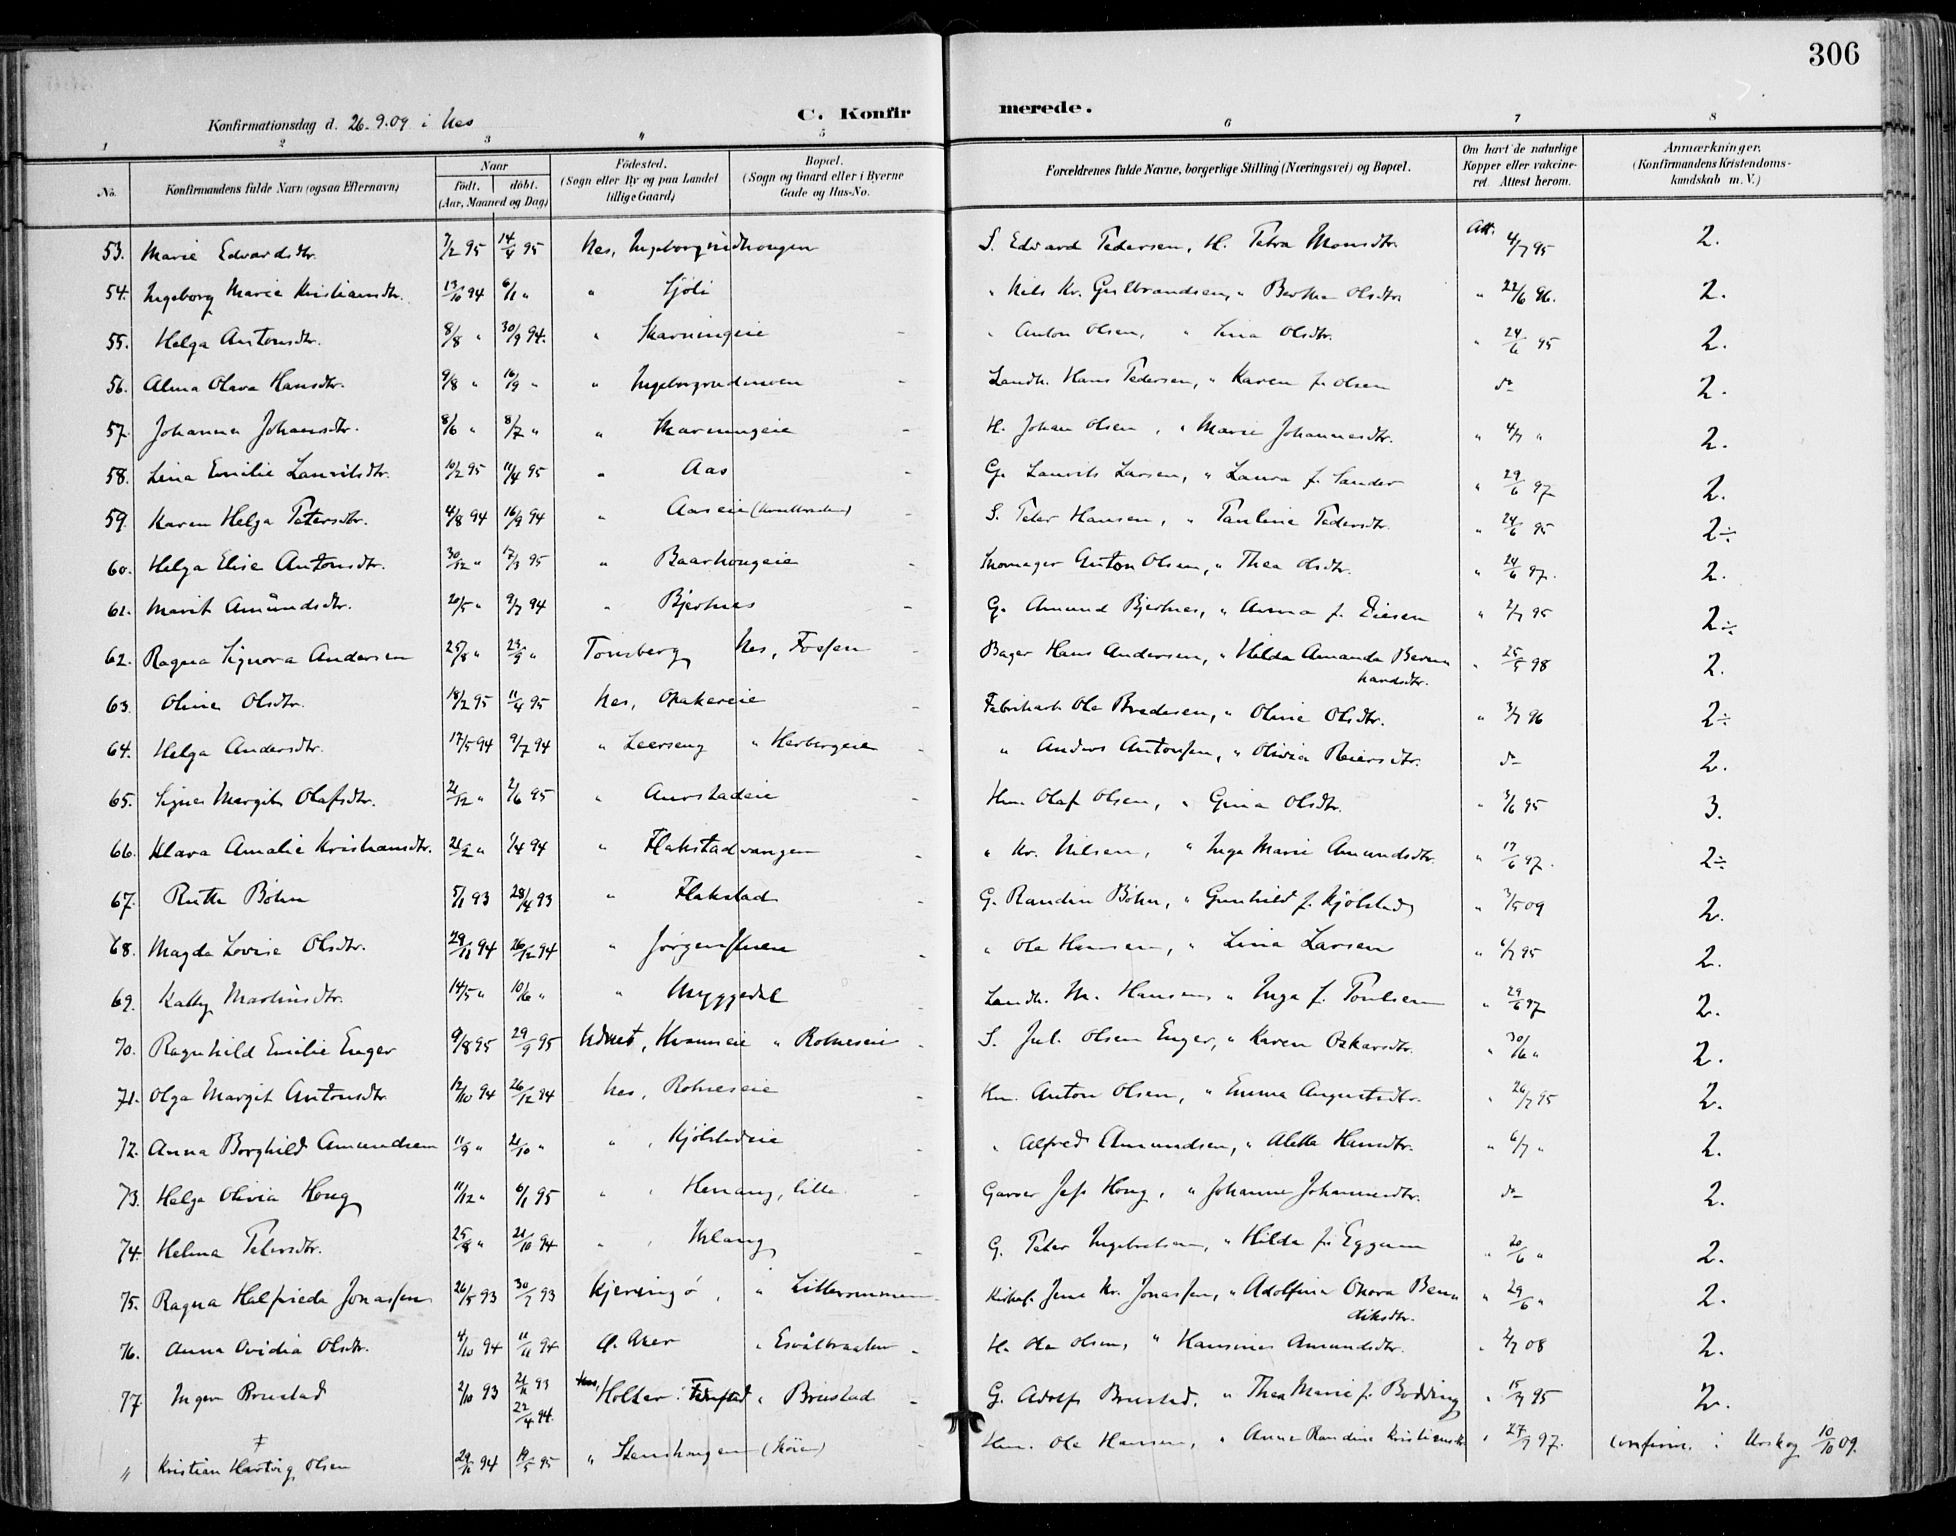 306
Konfirmationsdag d. 26.9.09 i Nes
C. Konfir merede.
1 2 3 " 5 6 7 8
No. Konfirmandens fulde Navn (ogsaa Efternavn) Naar født. døbt. (Aar, Maaned og Dag) Fødested. (Sogn eller By og paa Landet tillige Gaard) Bopæl. (Sogn og Gaard eller i Byerne Gade og Hus-No. Forældrenes fulde Navne, borgerlige Stilling (Næringsvei) og Bopæl. Om havt de naturlige Kopper eller vakcineret. Attest herom. Anmærkninger. (Konfirmandens Kristendomskundskab m. V.)
53. Marie Edvardsdtr. 7/2 95 14/4 95 Nes, S. Edvard Pedersen, H. Petra Monsdtr. Att. 4/7 95 2.
54. Ingeborg Marie Kristiansdtr. 13/10 94 6/1 " " Sjøli " Nils Kr. Gulbrandsen, " Berthe Olsdtr. " 22/6 96. 2.
55. Helga Antonsdtr. 8/8 " 30/9 94. " Skarningeie " Anton Olsen, " Lina Olsdtr. " 24/6 95 2.
56. Alma Olava Hansdtr. 9/8 " 16/9 " " Landh. Hans Pedersen, " Karen f. Olsen do 2.
57. Johanna Johansdtr. 8/6 " 8/7 " " Skarningeie H. Johan Olsen, " Marie Johannesdtr. " 4/7 " 2.
58. Lina Emilie Lauritsdtr. 10/2 95 11/4 95 " Aas G. Laurits Larsen, " Laura f. Sander " 29/6 97 2.
59. Karen Helga Petersdtr. 4/8 94 16/9 94 " Aaseie S. Peter Hansen, " Pauline Pedersdtr. " 24/6 95 2÷
60. Helga Elise Antonsdtr. 30/12 " 17/3 95 " Baarhougeie Skomager Anton Olsen, " Thea Olsdtr. " 24/6 97. 2.
61. Marit Amundsdtr. 20/5 " 9/7 94 " Bjerknes G. Amund Bjerknes, " Anna f. Diesen " 2/7 95 2÷
62. Ragna Signora Andersen 25/8 " 23/9 " Tønsberg Nes, Fossen Bager Hans Andersen, " Hilda Amanda Bernhardsdtr. " 25/5 98 2.
63. Oline Olsdtr. 18/2 95 11/4 95 Nes, Opakereie Fabrikarb. Ole Bredesen, " Oline Olsdtr. " 3/7 96 2÷
64. Helga Andersdtr. 17/5 94 9/7 94 " Leerseng " Herbergeie " Anders Antonsen, " Olivia Reiersdtr. do 2.
65. Signe Margit Olafsdtr. 21/12 " 2/6 95 " Aurstadeie Hm. Olaf Olsen, " Gina Olsdtr. " 3/6 95 3.
66. Klara Amalie Kristiansdtr. 21/2 " 1/4 94 " Flakstadvangen " Kr. Nilsen, " Inga Marie Amundsdtr. " 17/6 97. 2÷
67. Ruth Bøhn 5/1 93 28/4 93 " Flakstad G. Randin Bøhn, " Gunhild f. Kjølstad " 3/5 09 2.
68. Magda Lovise Olsdtr. 29/11 94 26/12 94 " " Ole Hansen, " Lina Larsen " 6/7 95 2.
69. Kathy Martinsdtr. 14/5 " 10/6 " " Myggedal Landh. M. Hansen " Inga f. Poulsen " 29/6 97 2.
70. Ragnhild Emilie Enger 9/8 95 29/9 95 Udnes, " Rotneseie S. Jul. Olsen Enger, " Karen Oskarsdtr. " 30/6 " 2.
71. Olga Margit Antonsdtr. 12/10 94 26/12 94 Nes, Rotneseie Hm. Anton Olsen, " Emma Augustsdtr. " 26/7 95 2.
72. Anna Borghild Amundsen 11/9 " 21/10 " " , Kjølstadeie " Alfred Amundsen, " Aletta Hansdtr. " 6/7 " 2.
73. Helga Olivia Houg 11/12 " 6/1 95 " , Henang, lille Garver Jefs Houg, " Johanne Johannesdtr. do 2.
74. Helma Petersdtr. 25/8 " 21/10 94 " , G. Peter Ingebretsen, " Hilda f. Eggum " 20/6 " 2.
75. Ragna Halfrida Jonassen 26/5 93 30/7 93 Kjeringø, " Lillerommen Jens Kr. Jonassen, " Adolfine Onora Bendiksdtr. " 29/6 " 2.
76. Anna Ovidia Olsdtr. 4/10 94 11/11 94 Ø. Aker " Esvålbraaten H. Ole Olsen, " Hansine Amundsdtr. " 2/7 08 2.
77. Inger Brustad 2/10 93 21/11 93 22/4 94. Nes, Holter: " Brustad G. Adolf Brustad, " Thea Marie f. Bodding " 15/7 95 2.
" Kristian Hartvig Olsen 29/11 94 19/5 95 " Hm. Ole Hansen, " Anne Randine Kristiansdtr " 27/7 97. confirm. i Urskog 10/10 09.